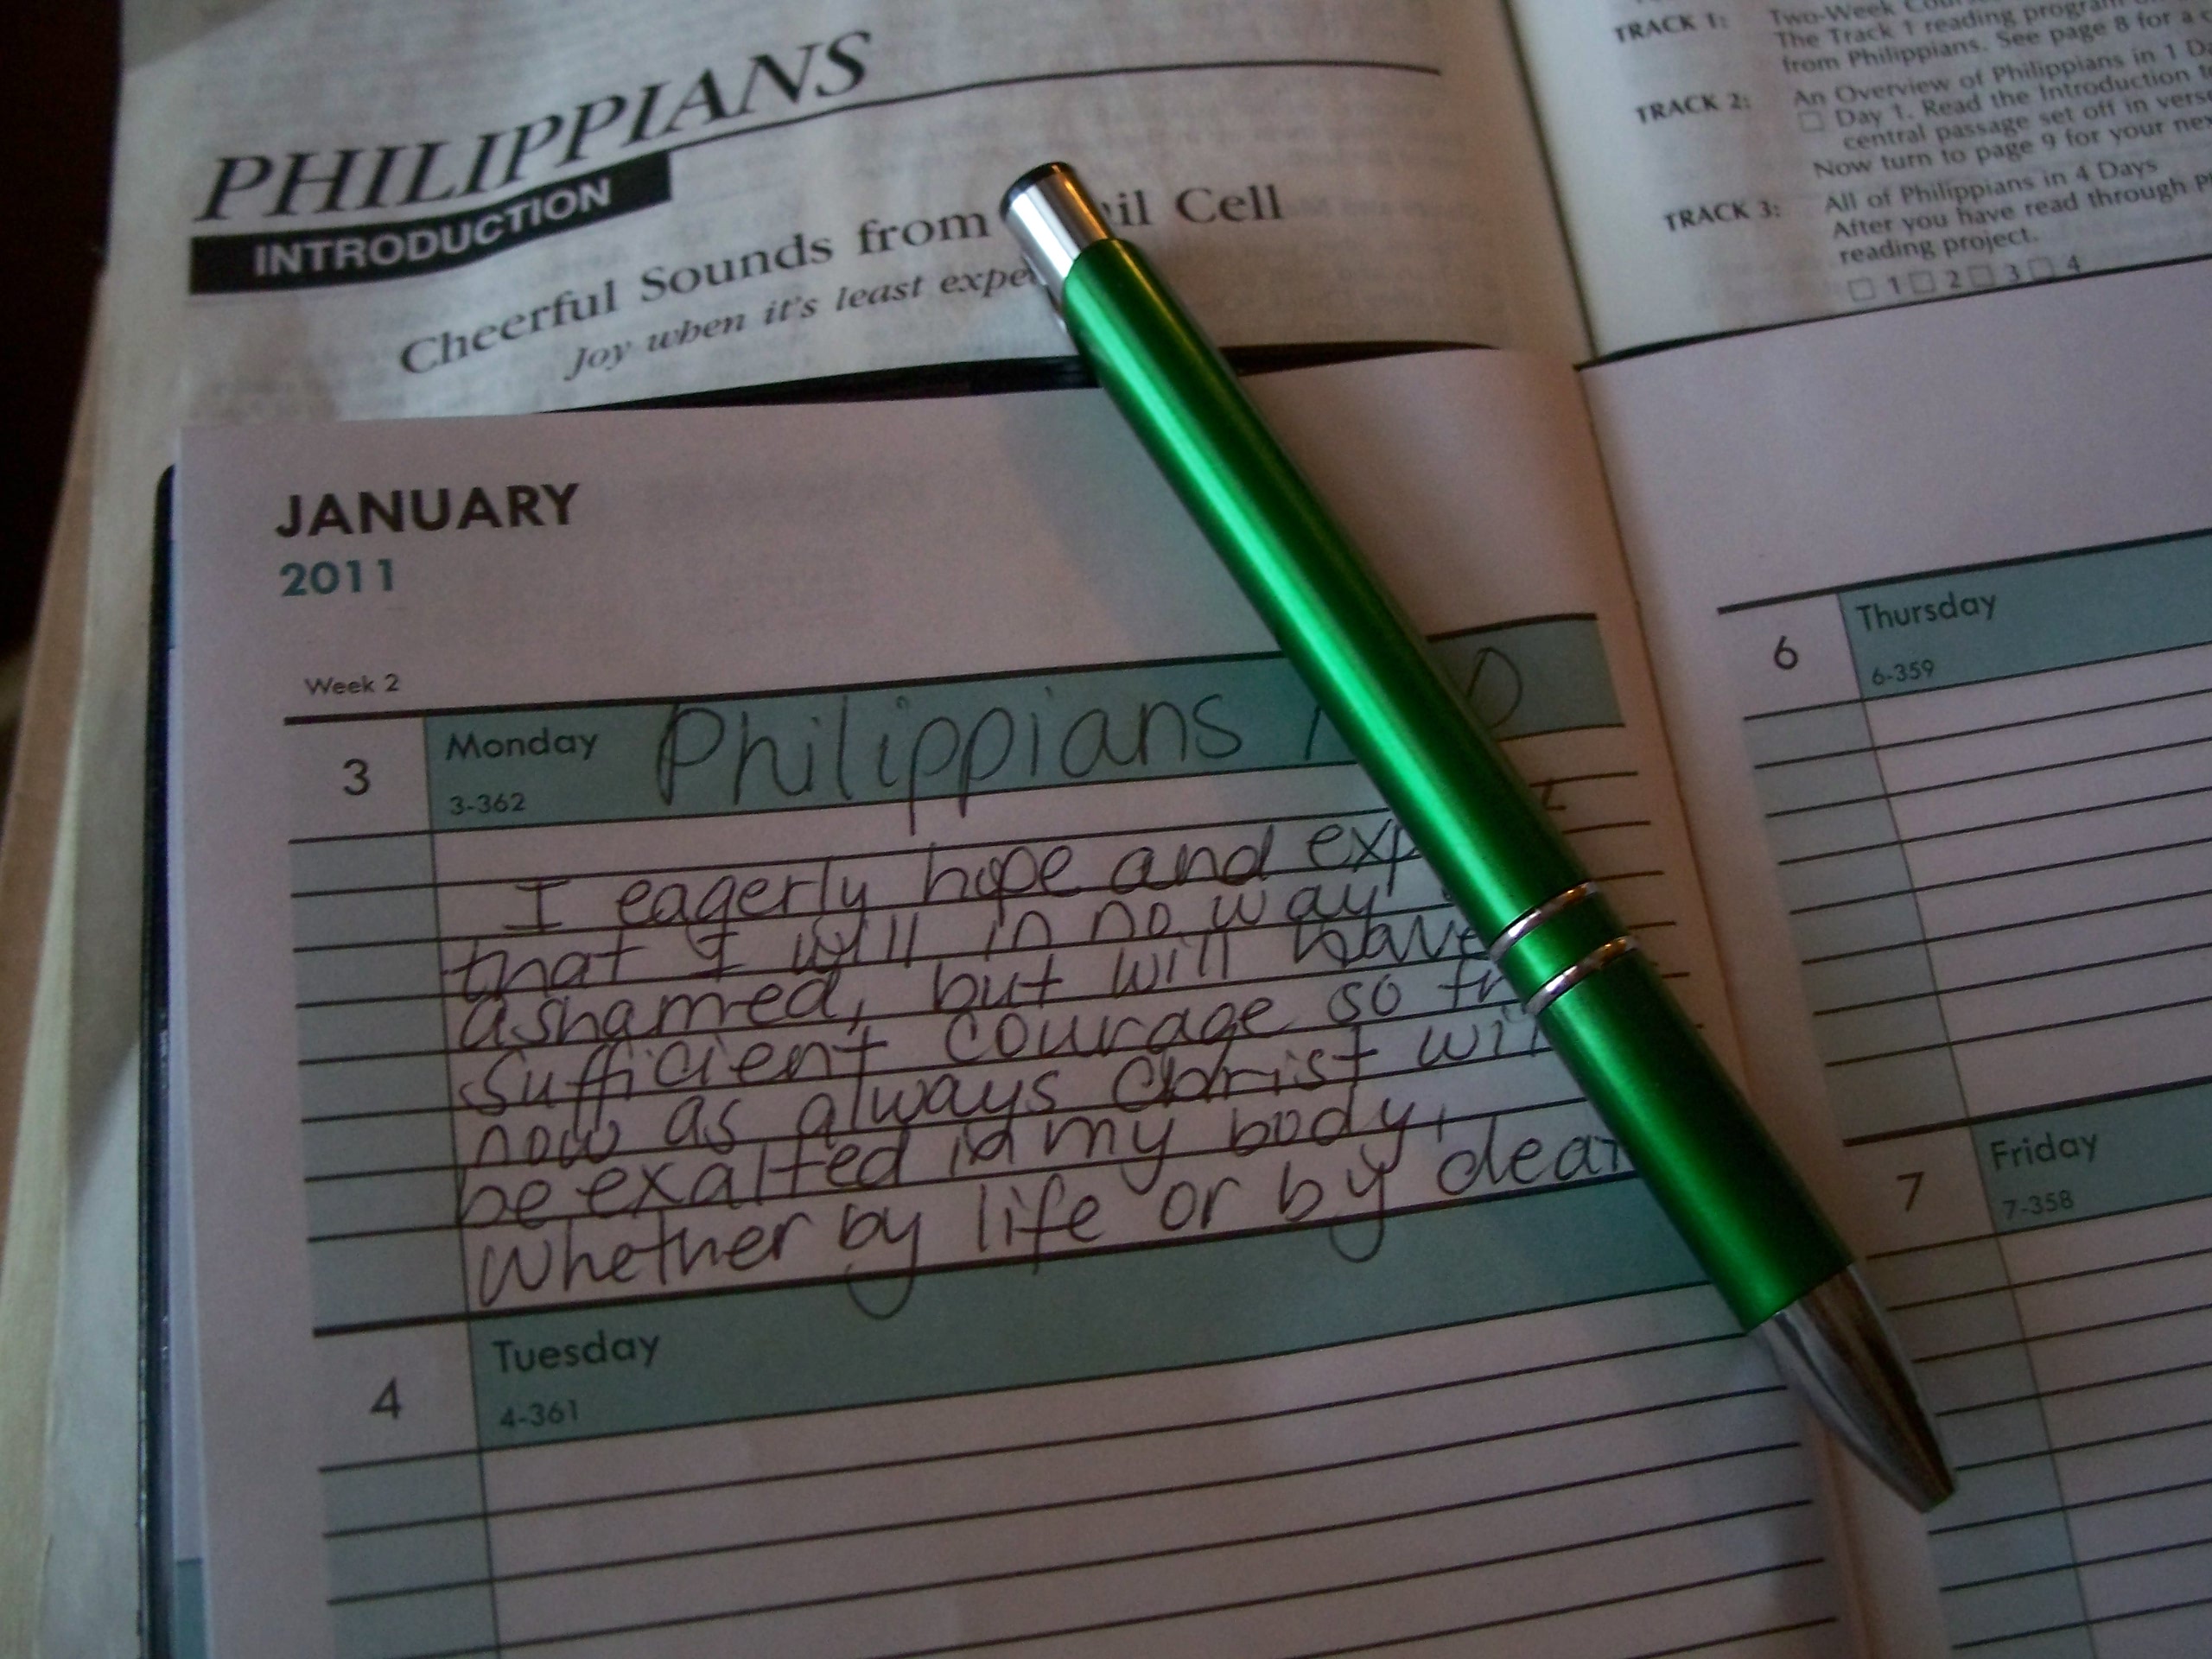 PHILIPPIANS
INTRODUCTION
Cheerful Sounds from il Cell
Joy when it's least expe
TRACK 1: Two-Week
The Track 1 reading program
from Philippians. See page 8 for a
TRACK 2: An Overview of Philippians in 1 D
☐ Day 1. Read the Introduction
central passage set off in verse
Now turn to page 9 for your
TRACK 3: All of Philippians in 4 Days
After you have read through
reading project.
☐ 1 ☐ 2 ☐ 3 ☐ 4
JANUARY
2011
Week 2
3 Monday Philippians
3-362
I eagerly hope and exp
that I will in no way
ashamed, but will have
sufficient courage so
now as always Christ wi
be exalted in my body,
whether by life or by deat
4 Tuesday
4-361
6 Thursday
6-359
7 Friday
7-358